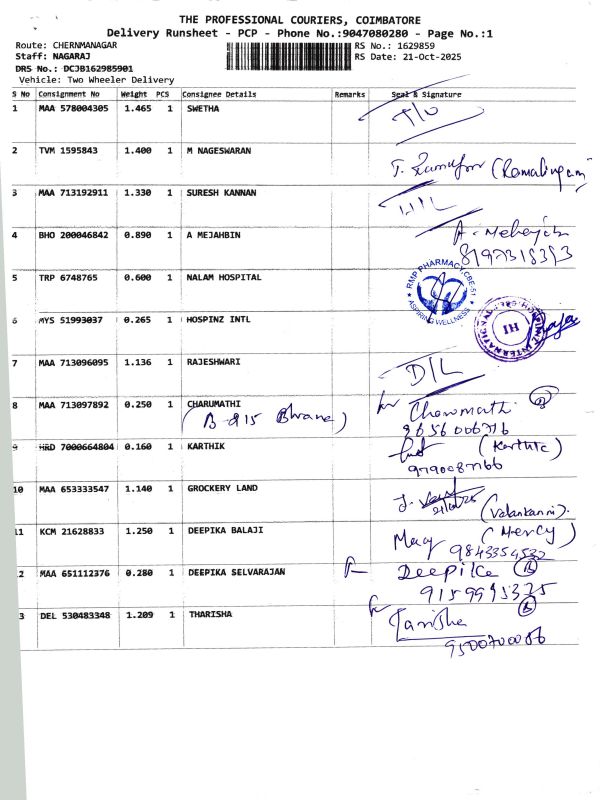 THE PROFESSIONAL COURIERS, COIMBATORE
Delivery Runsheet - PCP - Phone No.:9047080280 - Page No.:1
Route: CHERNMANAGAR RS No.: 1629859
Staff: NAGARAJ RS Date: 21-Oct-2025
DRS No.: DCJB162985901
Vehicle: Two Wheeler Delivery
S No Consignment No Weight PCS Consignee Details Remarks Seal & Signature
1 MAA 578004305 1.465 1 SWETHA
2 TVM 1595843 1.400 1 M NAGESWARAN
(Ramalingam)
3 MAA 713192911 1.330 1 SURESH KANNAN
4 BHO 200046842 0.890 1 A MEJAHBIN A. Mehajabin
8197318393
5 TRP 6748765 0.600 1 NALAM HOSPITAL
RMP PHARMACY, CBE-5
ASPIRING WELLNESS
6 MYS 51993037 0.265 1 HOSPINZ INTL
HI
7 MAA 713096095 1.136 1 RAJESHWARI D/L
8 MAA 713097892 0.250 1 CHARUMATHI Charumathi
(B-915 )
9 HRD 7000664804 0.160 1 KARTHIK (Karthic)
10 MAA 653333547 1.140 1 GROCKERY LAND
(Velankanni).
11 KCM 21628833 1.250 1 DEEPIKA BALAJI (Mercy)
9843354532
12 MAA 651112376 0.280 1 DEEPIKA SELVARAJAN Deepika
9159995325
13 DEL 530483348 1.209 1 THARISHA Tarisha
9500700086